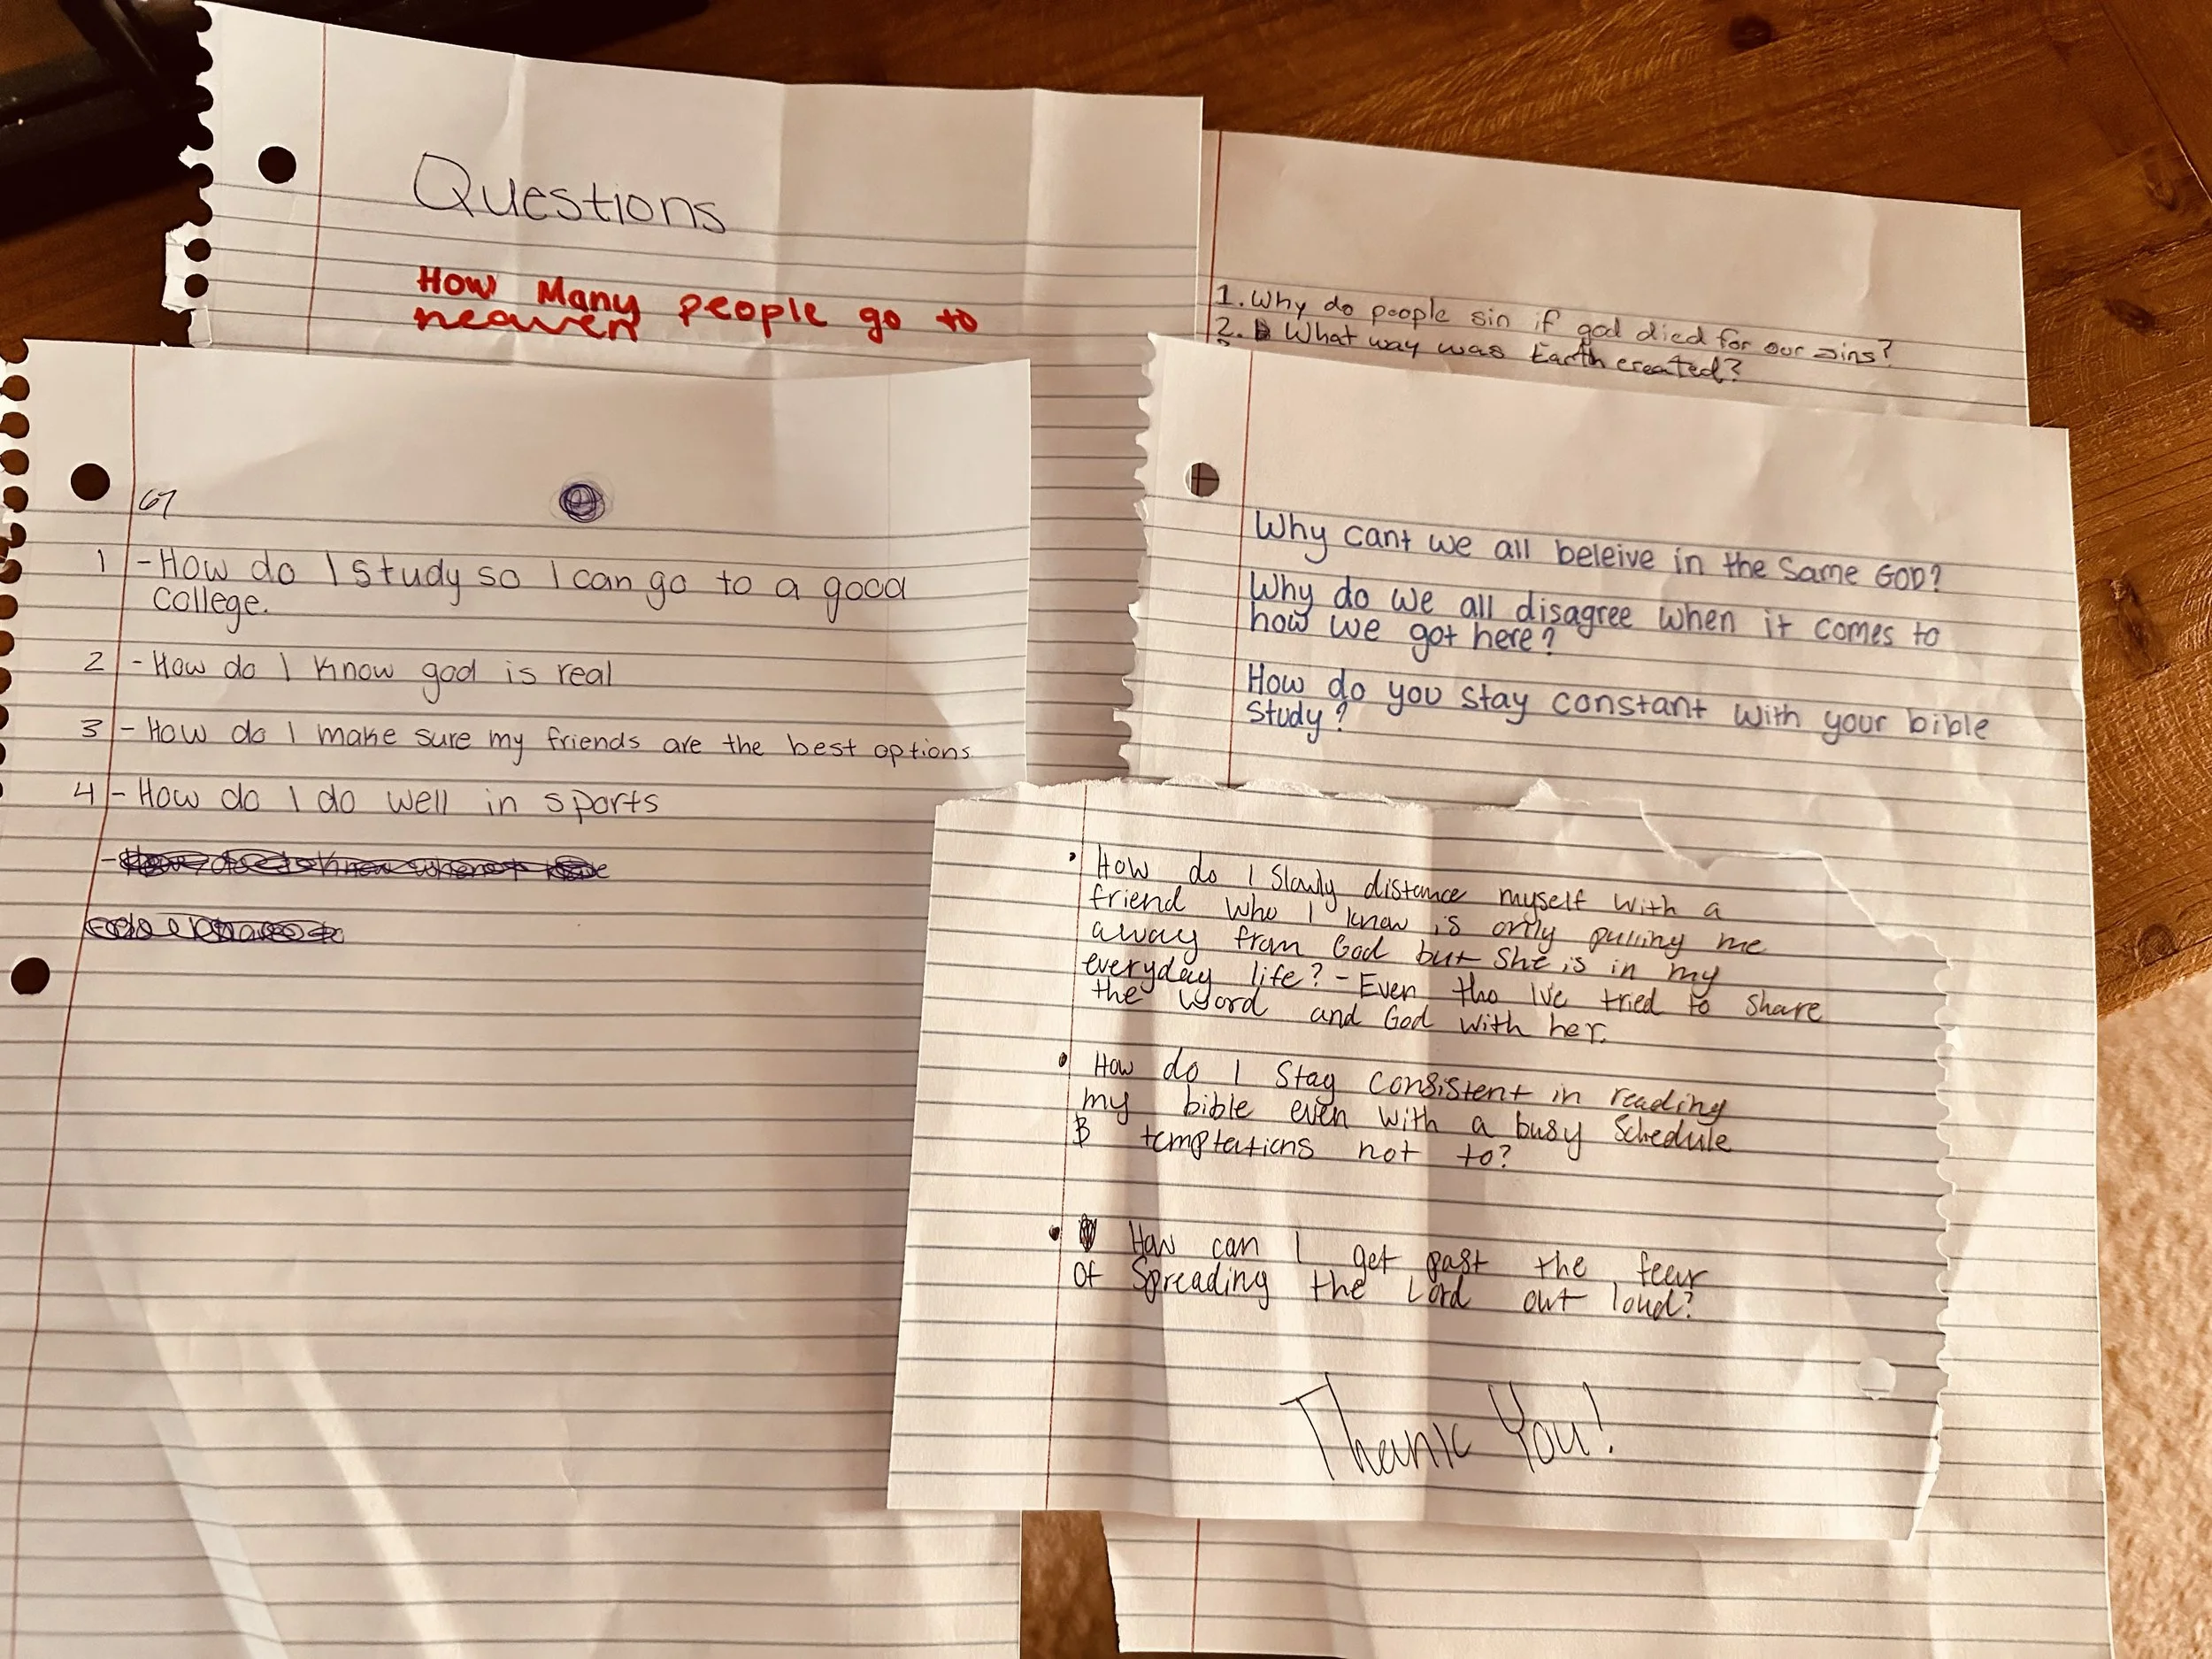 Questions
How Many people go to
heaven
1. Why do people sin if god died for our sins?
2. What way was Earth created?
67
1 - How do I study so I can go to a good
college.
2 - How do I know god is real
3 - How do I make sure my friends are the best options
4 - How do I do well in sports
Why cant we all beleive in the Same GOD?
Why do we all disagree when it comes to
how we got here?
How do you stay constant with your bible
study?
• How do I Slowly distance myself with a
friend who I know is only pulling me
away from God but She is in my
everyday life? - Even tho I've tried to share
the word and God with her.
• How do I Stay consistent in reading
my bible even with a busy schedule
& temptations not to?
• How can I get past the fear
of Spreading the Lord out loud?
Thank You!